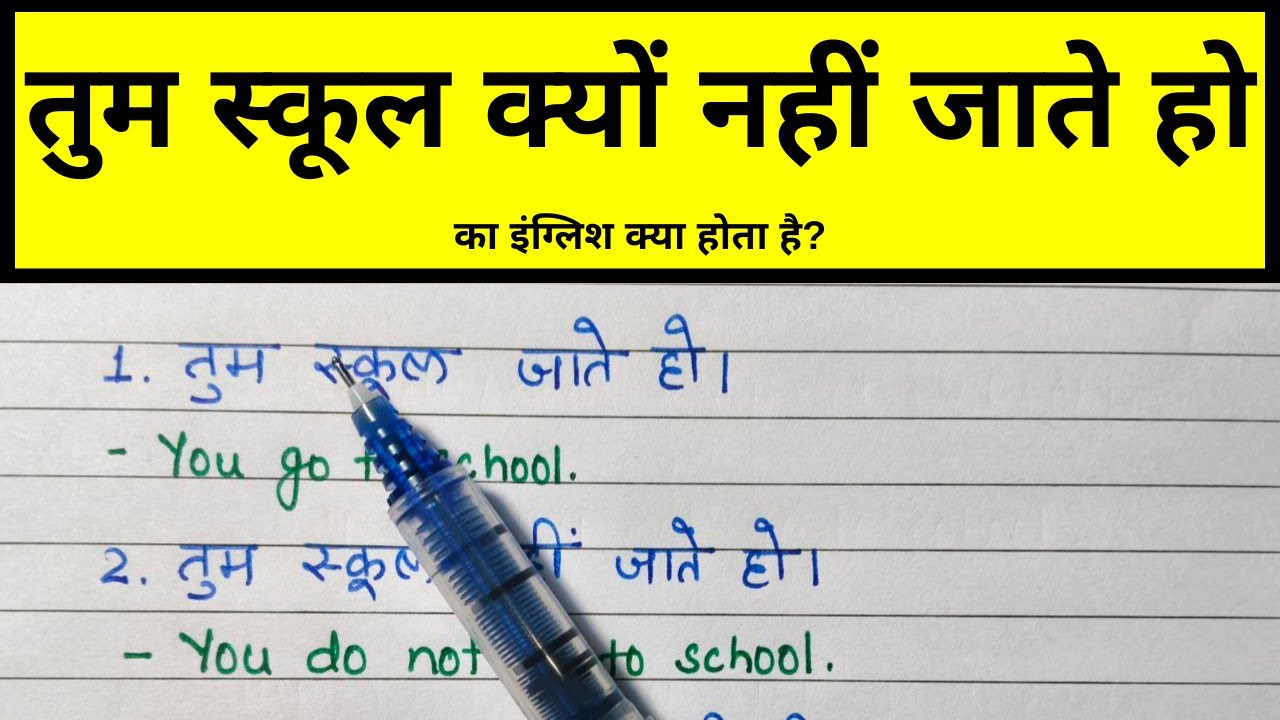 तुम स्कूल क्यों नहीं जाते हो
का इंग्लिश क्या होता है?
1. तुम स्कूल जाते हो।
- You go school.
2. तुम स्कूल जाते हो।
- You do not to school.